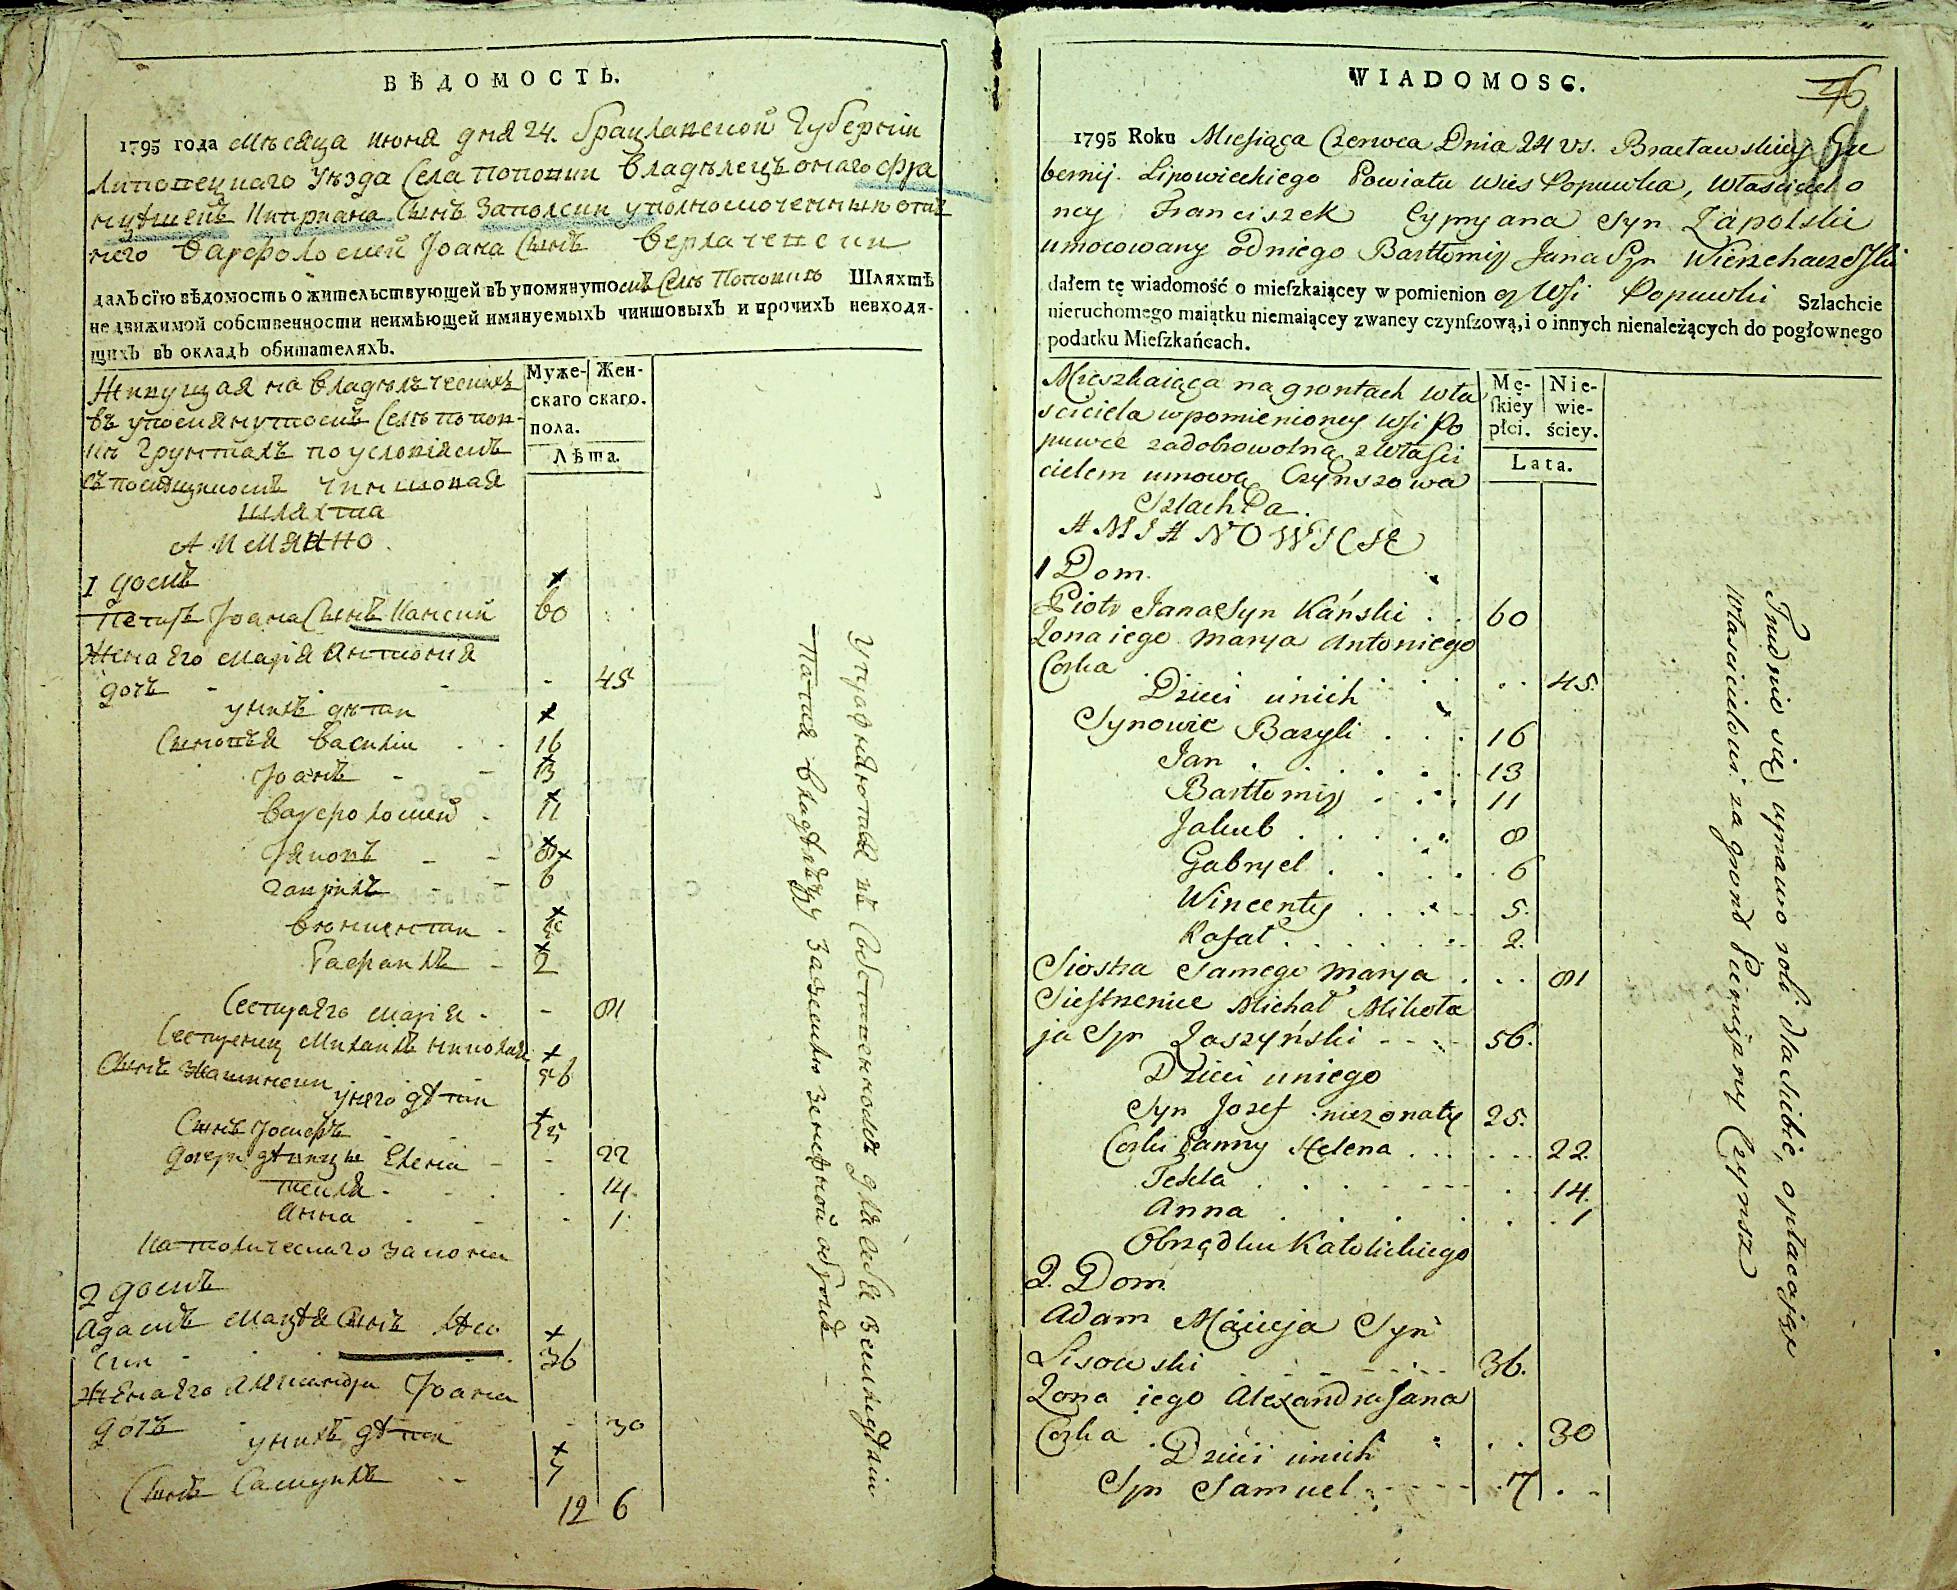 ВѢДОМОСТЬ.
1795 года Мѣсяца июня дня 24. Брацлавской Губерніи
Липовецкаго Уѣзда Села Поповки владѣлецъ онаго Фра
нцишекъ Киприана Сынъ Заполски уполномоченный отъ
него Варфоломей Іоана Сынъ
далъ сїю вѣдомость о жительствующей въ упомянутомъ Селѣ Поповкѣ Шляхтѣ
недвижимой собственности неимѣющей имянуемыхъ чиншовыхъ и прочихъ невходя-
щихъ въ окладъ обитателяхъ.
Муже- Жен-
скаго скаго.
пола.
Лѣта.
Живущая на владѣлческихъ
въ упомянутомъ Селѣ Попов-
кѣ Грунтахъ по условіямъ
съ помѣщикомъ чиншовая
шляхта
А ИМЯННО
1 домъ
Петръ Іоана Сынъ Канский 60
Жена Его Марія Антонія
дочъ - 45
у нихъ дѣти
Сыновья Василій 16
Іоанъ 13
Варфоломей 11
Яковъ 8
Гаврилъ 6
Викентий 5
Рафаилъ 2
Сестра Его Марія - 81
Сестренец Михаилъ Николая
Сынъ 56
у него дѣти
Сынъ Іосифъ 25
Дочери дѣвицы Елена 22
Текля 14
Анна 1
Католическаго закона
2 домъ
Адамъ Мацѣя Сынъ Лисо
вски 36
Жена Его Александра Іоана
дочъ 30
у нихъ дѣти
Сынъ Самуилъ 7
12 6
Упражняются въ собственномъ для себя земледѣліи
Платя владѣльцу за землю денежной оброкъ
WIADOMOSC.
46
1795 Roku Miesiąca Czerwca Dnia 24 v.s. Bracławskiey Gu
bernij Lipowieckiego Powiatu Wies Popuwka, Własciciel o
ney Franciszek Cypryana Syn Zapolski
umocowany od niego Bartłomiy Jana Syn
dałem tę wiadomość o mieſzkaiącey w pomienioney Wsi Popuwki Szlachcie
nieruchomego maiątku niemaiącey zwaney czynſzową, i o innych nienależących do pogłownego
podatku Mieſzkańcach.
Mę- Nie-
ſkiey wie-
płci. ściey.
Lata.
Mieszkaiąca na grontach wła
sciciela wpomienioney Wsi Po
puwce za dobrowolną z własci
cielem umową Czynszowa
Szlachta.
A MIANOWICIE
1 Dom.
Piotr Jana Syn Kański . . 60
Zona iego Marya Antoniego
Corka . . . 45.
Dzieci u nich
Synowie Bazyli . . . 16
Jan . . . 13
Bartłomiy . . . 11
Jakub . . . 8
Gabryel . . . 6
Wincenty . . . 5.
Rafał . . . 2.
Siostra Samego Marya . . . 81
Siestrzeniec Michał Mikoła
ja Syn Zaszyński - - - 56.
Dzieci u niego
Syn Jozef niezonaty 25.
Corki Panny Helena . . . 22.
Tekla . . . 14.
Anna . . . 1
Obrządku Katolickiego
2. Dom
Adam Macieja Syn
Lisowski . . . 36.
Zona iego Alexandra Jana
Corka . . . 30
Dzieci u nich
Syn Samuel - - - 7
Trudnie się uprawo roli dla siebie, opłacając
Włascicielowi za gront Pieniężny Czynsz